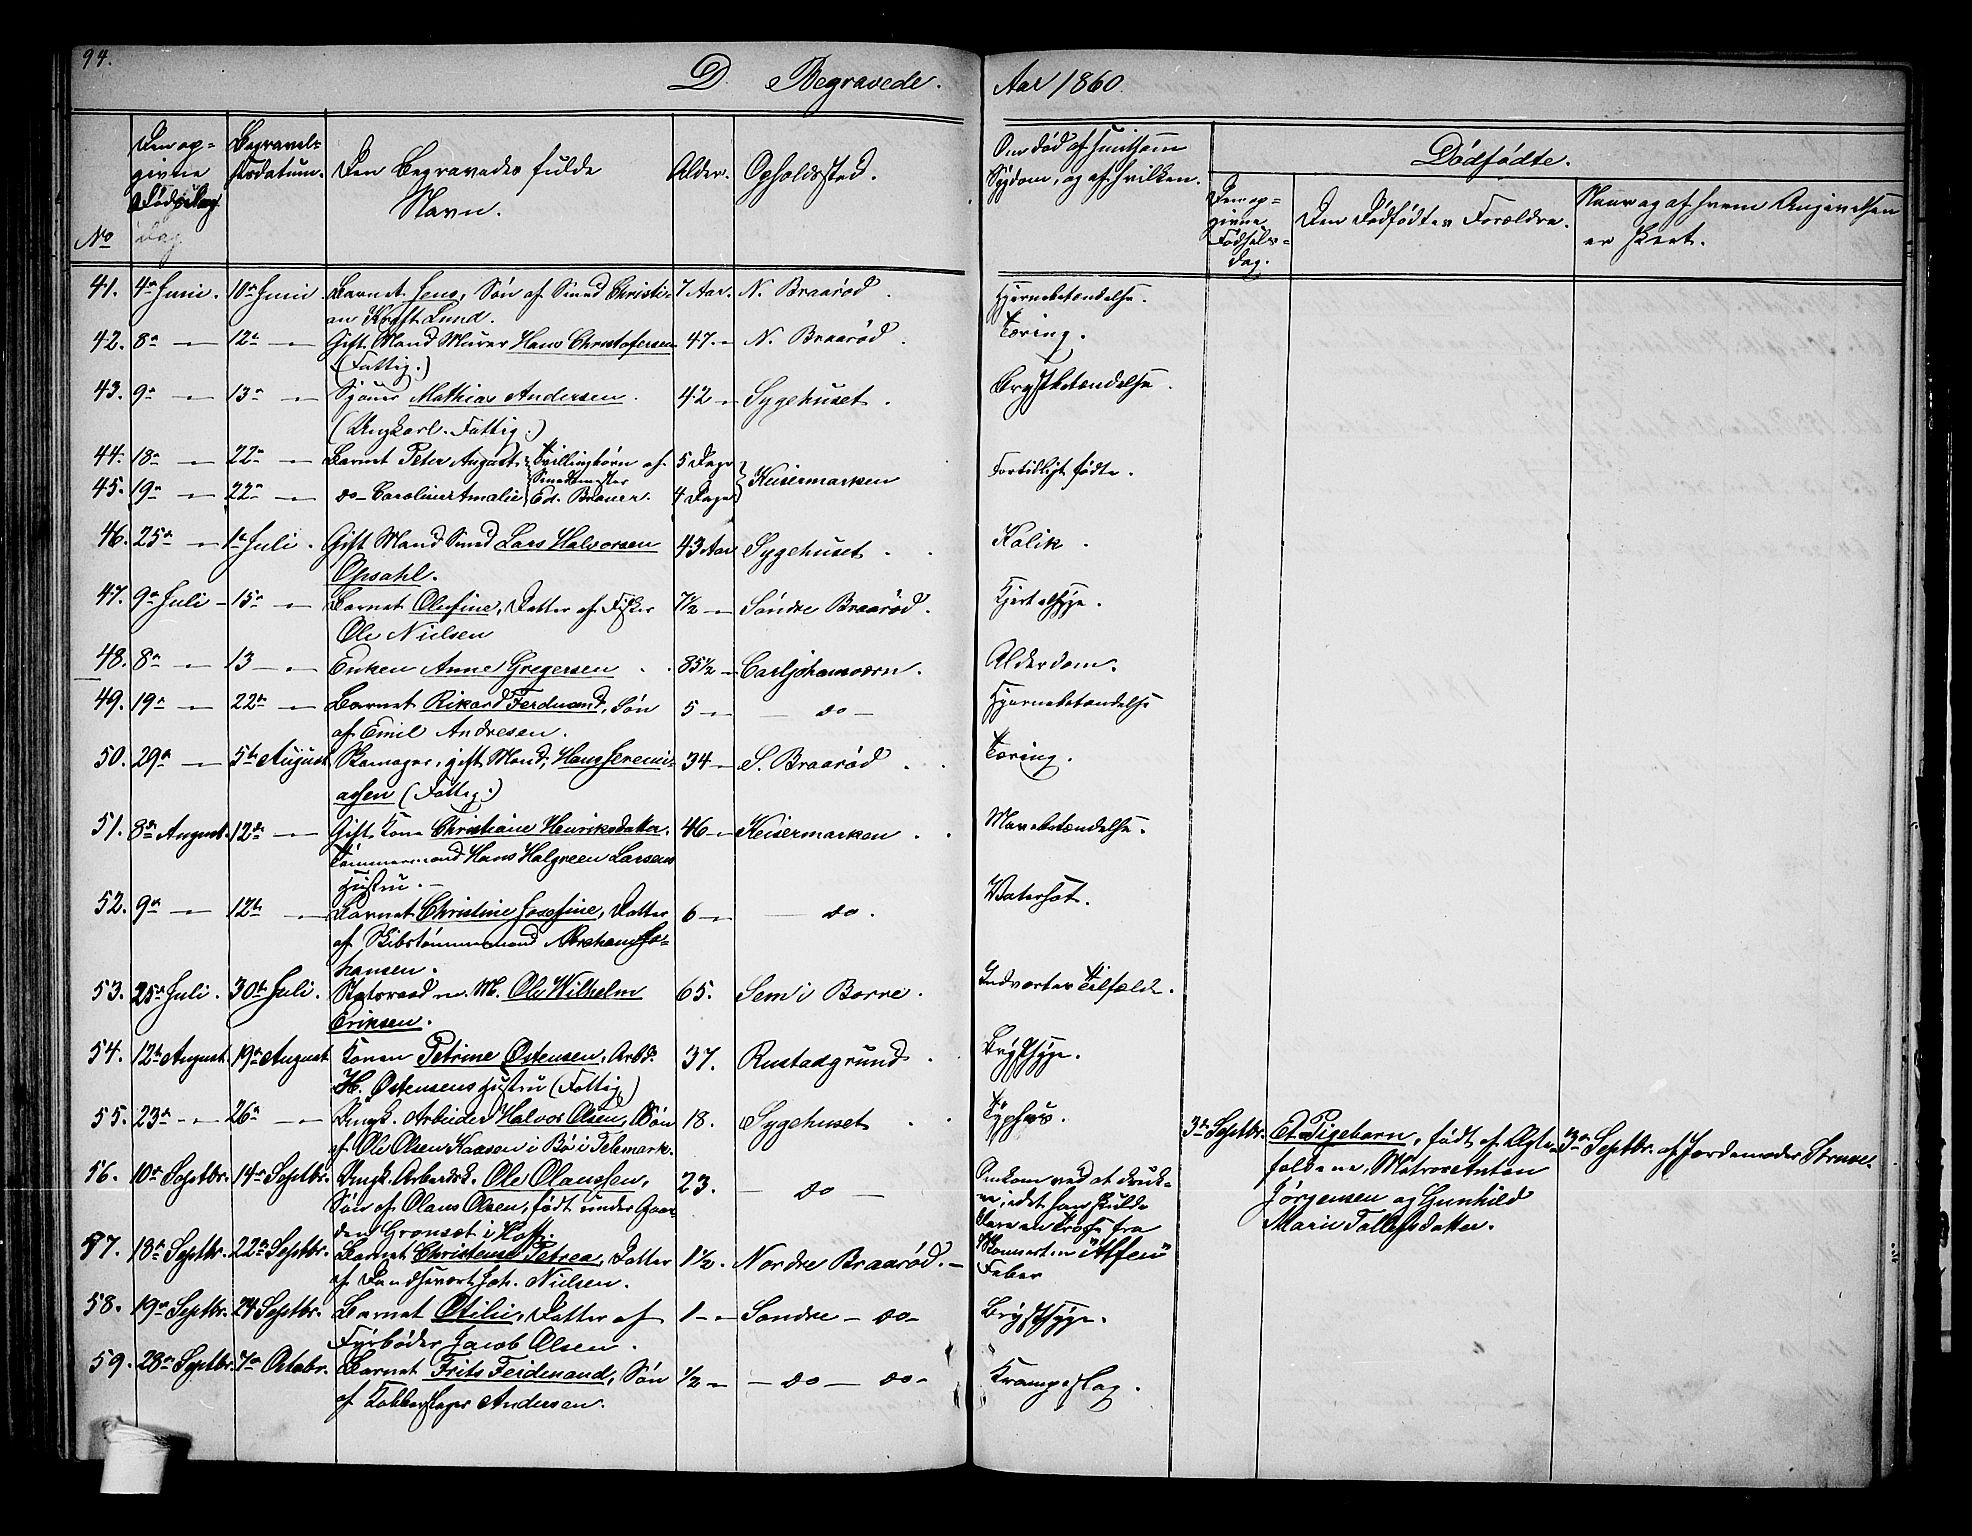 94.
D. Begravede. Aar 1860.
No
Den op-
givne
Dødsdag
Dag
Begravel-
sesdatum.
Den Begravedes fulde
Navn.
Alder.
Opholdssted.
Om død af smitsom
Sygdom, og af hvilken.
Dødfødte.
Den op-
givne
Fødsels-
dag.
Den Dødfødtes Forældre.
Naar og af hvem Angivelsen
er skeet.
41. 4de Juni. 10de Juni Barnet Jens, Søn af Smed Christi- 7 Aar. N. Braarød. Hjernebetændelse.
an Kraft Lund.
42. 8de — 12te — Gift Mand Murer Hans Christofersen 47 — N. Braarød. Tæring.
(Fattig.)
43. 9de — 13de — Mathias Andersen. 42 — Sygehuset. Brystbetændelse.
(Ungkarl. Fattig.)
44. 18de — 22de — Barnet Peter August Tvillingbørn af 5 Dage Keisermarken For tidligt fødte.
Smedmester
45. 19de — 22de — do— Caroline Amalie Ed. Brauer. 4 Dage
46. 25de — 1te Juli. Gift Mand Smed Lars Halvorsen 43 Aar Sygehuset. Kolik.
Opsahl.
47. 9de Juli — 15de — Barnet Olufine, Datter af Fisker 7½ — Søndre Braarød. Kjertelsyge.
Ole Nielsen
48. 8de — 13 — Enken Anne Gregersen 85½ — Carljohansværn. Alderdom.
49. 19de — 22de — Barnet Rikard Ferdinand, Søn 5 — — do — Hjernebetændelse
af Emil Andresen.
50. 29de — 5te August Skomager, gift Mand, Hans Jeremi- 34 — S. Braarød. Tæring.
assen (Fattig.)
51. 8de August. 12te — Gift Kone Christiane Henriksdatter. 46 — Keisermarken. Mavebetændelse.
Tømmermand Hans Halgreen Larsens
Hustru. —
52. 9de — 12te — Barnet Christine Josefine, Datter 6 — — do. Watersot.
af Skibstømmermand Abraham Jo-
hansen.
53. 25de Juli. 30te Juli. Statsraad m. M. Ole Wilhelm 65. Sem i Borre. Indvortes Tilfælde.
Eriksen.
54. 12te August. 19de August Konen Petrine Østensen, Arbd. 37. Rustadgrund. Brystsyge.
H. Østensens Hustru (Fattig)
55. 23de — 26de — Ungk. Arbeider Halvor Olsen, Søn 18. Sygehuset. Typhus.
af Ole Olsen Kaasen i Bø i Telemark.
3de Septbr. Et Pigebarn, født af Ægte- 3de Septbr. af Jordemoder Struve.
folkene, Matros Anton
Jørgensen og Gunhild
Marie Tollefsdatter.
56. 10de Septbr. 14de Septbr. Ungk. Arbeidsk. Ole Olaussen, 23. — do — Omkom ved at druk-
Søn af Olaus Olsen, født under Gaar- ne, idet han skulde
den Grønset i Hoff. fra
57. 18de Septbr. 22de Septbr. Barnet Christense Petrea, Datter 1½. Nordre Braarød. — "Alfen"
af Joh. Nielsen. Feber
58. 19de Septbr. 24 Septbr. Barnet Otilie, Datter af 1 — Søndre — do — Brystsyge.
Fyrbøder Jacob Olsen.
59. 28de Septbr. 7de Octobr. Barnet Frits Ferdinand, Søn ½ — — do — do — Krampeslag.
af Kobberslager Andersen.